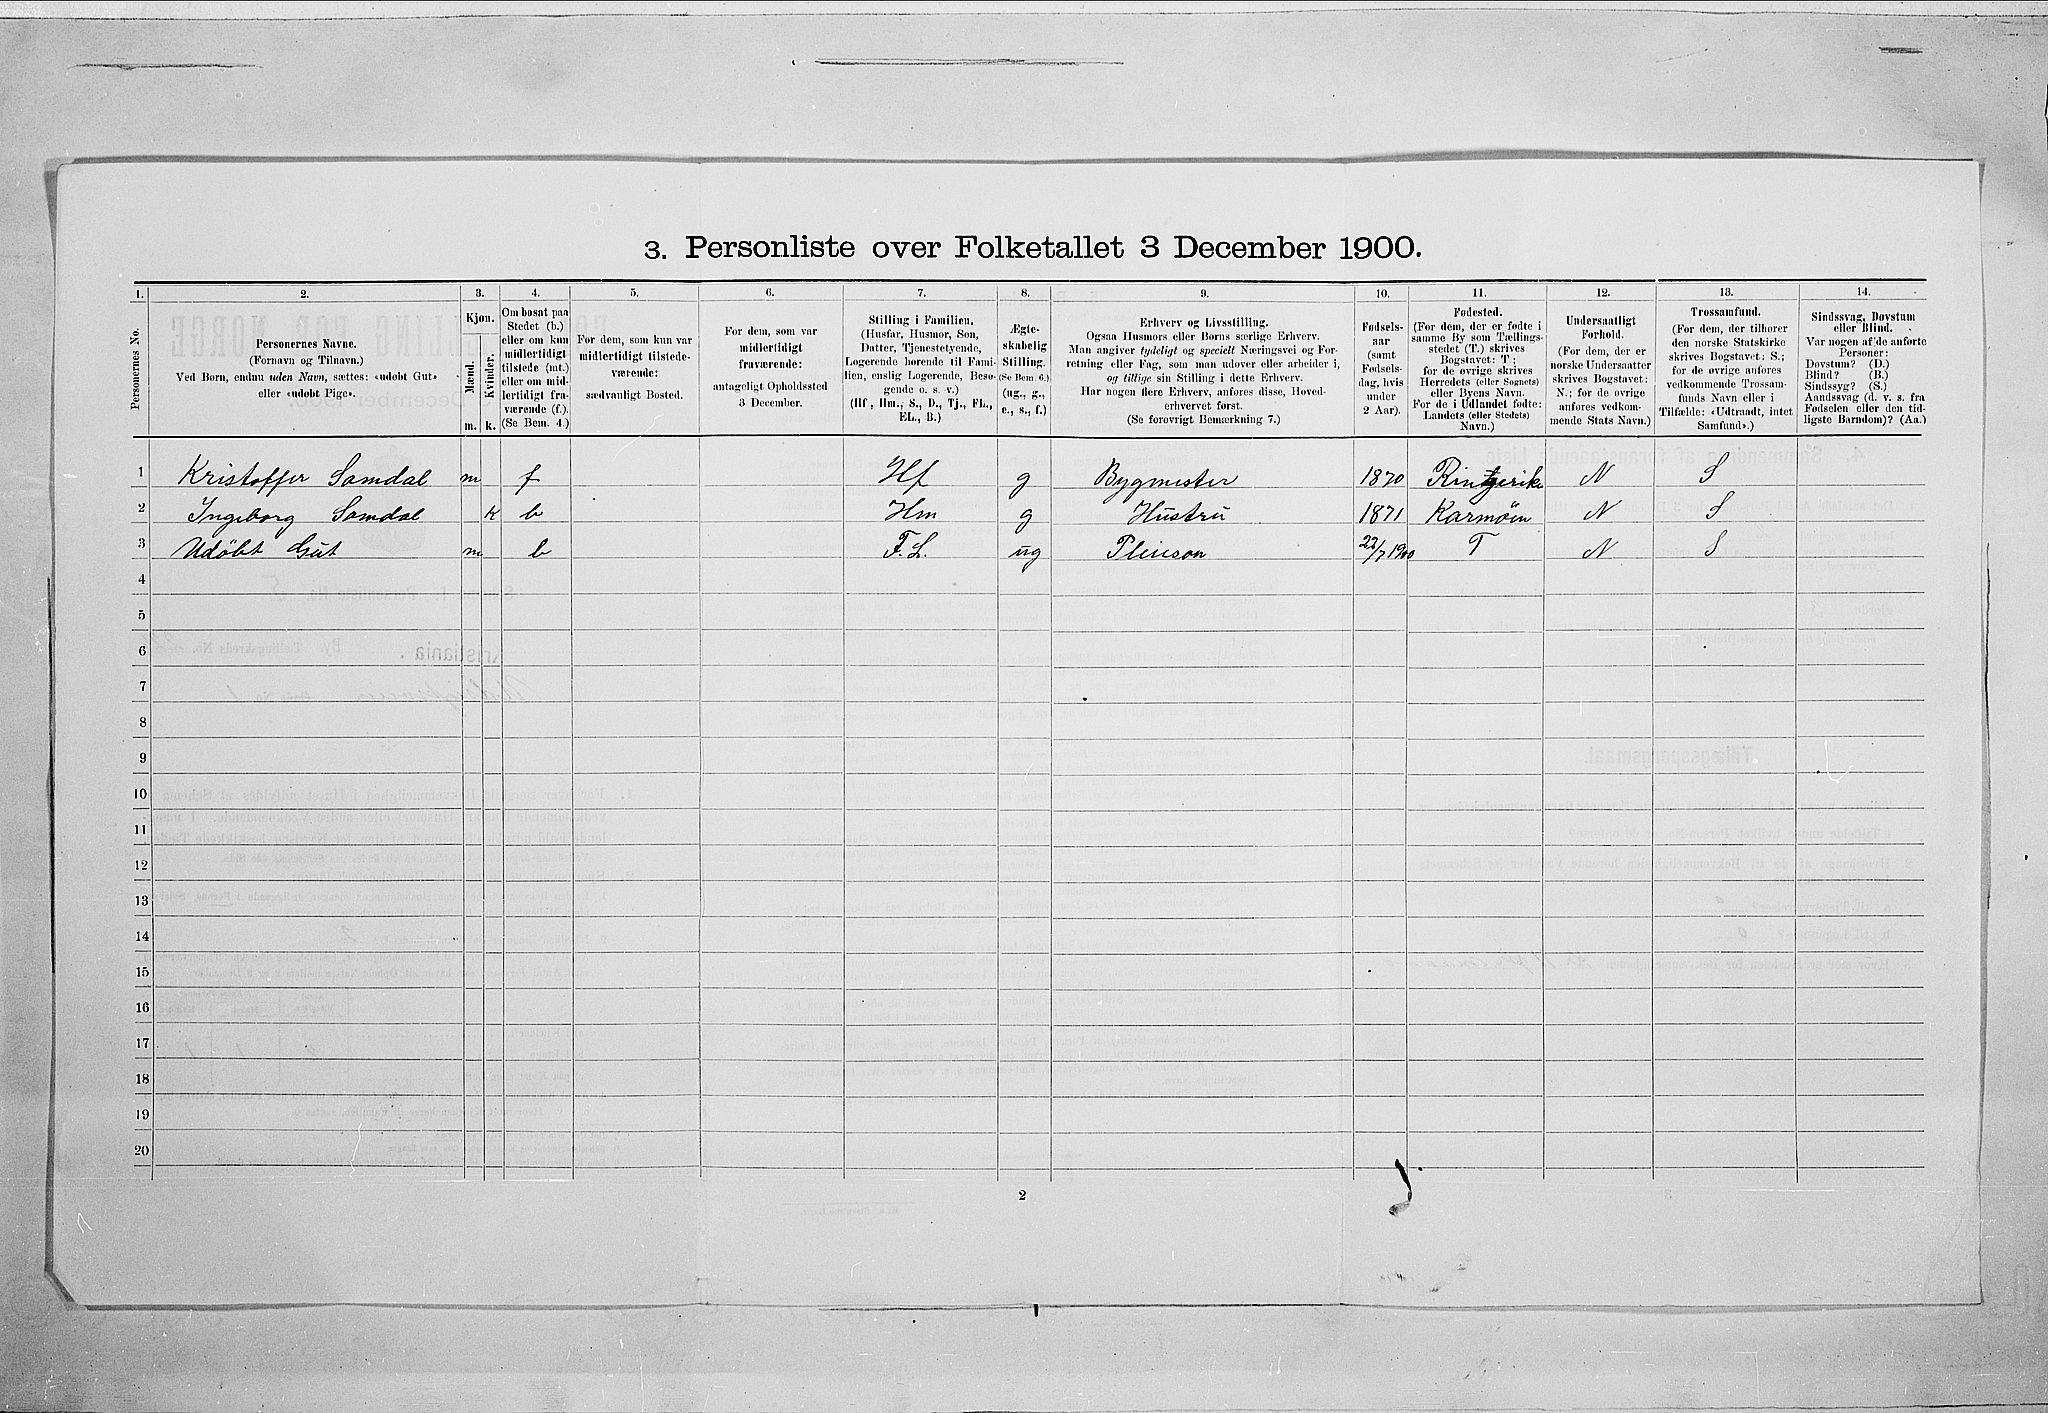 3. Personliste over Folketallet 3 December 1900.
1. 2. 3. 4. 5. 6. 7. 8. 9. 10. 11. 12. 13. 14.
Personernes No.
Personernes Navne.
(Fornavn og Tilnavn.)
Ved Børn, endnu uden Navn, sættes: «udøbt Gut»
eller «udøbt Pige».
Kjøn.
Mænd.
Kvinder.
m. k.
Om bosat paa
Stedet (b.)
eller om kun
midlertidigt
tilstede (mt.)
eller om mid-
lertidigt fra-
værende (f.).
(Se Bem. 4.)
For dem, som kun var
midlertidigt tilstede-
værende:
sædvanligt Bosted.
For dem, som var
midlertidigt
fraværende:
antageligt Opholdssted
3 December.
Stilling i Familien.
(Husfar, Husmor, Søn,
Datter, Tjenestetyende,
Logerende hørende til Fami-
lien, enslig Logerende, Besø-
gende o. s. v.)
(Hf, Hm., S., D., Tj., FL.,
EL., B.)
Ægte-
skabelig
Stilling.
(Se Bem. 6.)
(ug., g.,
e., s., f.)
Erhverv og Livsstilling.
Ogsaa Husmors eller Børns særlige Erhverv.
Man angiver tydeligt og specielt Næringsvei og For-
retning eller Fag, som man udøver eller arbeider i,
og tillige sin Stilling i dette Erhverv.
Har nogen flere Erhverv, anføres disse, Hoved-
erhvervet først.
(Se forøvrigt Bemærkning 7.)
Fødsels-
aar
(samt
Fødsels-
dag, hvis
under
2 Aar).
Fødested.
(For dem, der er fødte i
samme By som Tællings-
stedet (T.) skrives
Bogstavet: T;
for de øvrige skrives
Herredets (eller Sognets)
eller Byens Navn.
For de i Udlandet fødte:
Landets (eller Stedets)
Navn.)
Undersaatligt
Forhold.
(For dem, der er
norske Undersaatter
skrives Bogstavet:
N.; for de øvrige
anføres vedkom-
mende Stats Navn.)
Trossamfund.
(For dem, der tilhører
den norske Statskirke
skrives Bogstavet: S.;
for de øvrige anføres
vedkommende Trossam-
funds Navn eller i
Tilfælde: «Udtraadt, intet
Samfund».)
Sindssvag, Døvstum
eller Blind.
Var nogen af de anførte
Personer:
Døvstum? (D.)
Blind? (B.)
Sindssyg? (S.)
Aandssvag (d. v. s. fra
Fødselen eller den tid-
ligste Barndom)? (Aa.)
1 Kristoffer Samdal m f Hf g Bygmester 1870 Ringerike N S
2 Ingeborg Samdal k b Hm g Hustru 1871 Karmøen N S
3 Udöbt Gut m b F.L. ug 22/7 1900 T N S
4
5
6
7
8
9
10
11
12
13
14
15
16
17
18
19
20
2